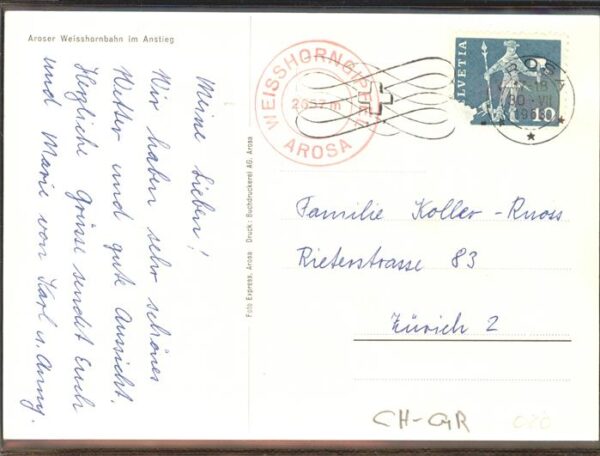 Aroser Weisshornbahn im Anstieg
Meine Lieben!
Wir haben sehr schönes
Wetter und gute Aussicht.
Herzliche Grüsse sendet Euch
und Marie von Karl u. Anny.
Foto Express, Arosa Druck: Buchdruckerei AG. Arosa
WEISSHORNGIPFEL
AROSA
HELVETIA
AROSA
Familie Koller-Ruoss
Rieterstrasse 83
Zürich 2
CH-GR